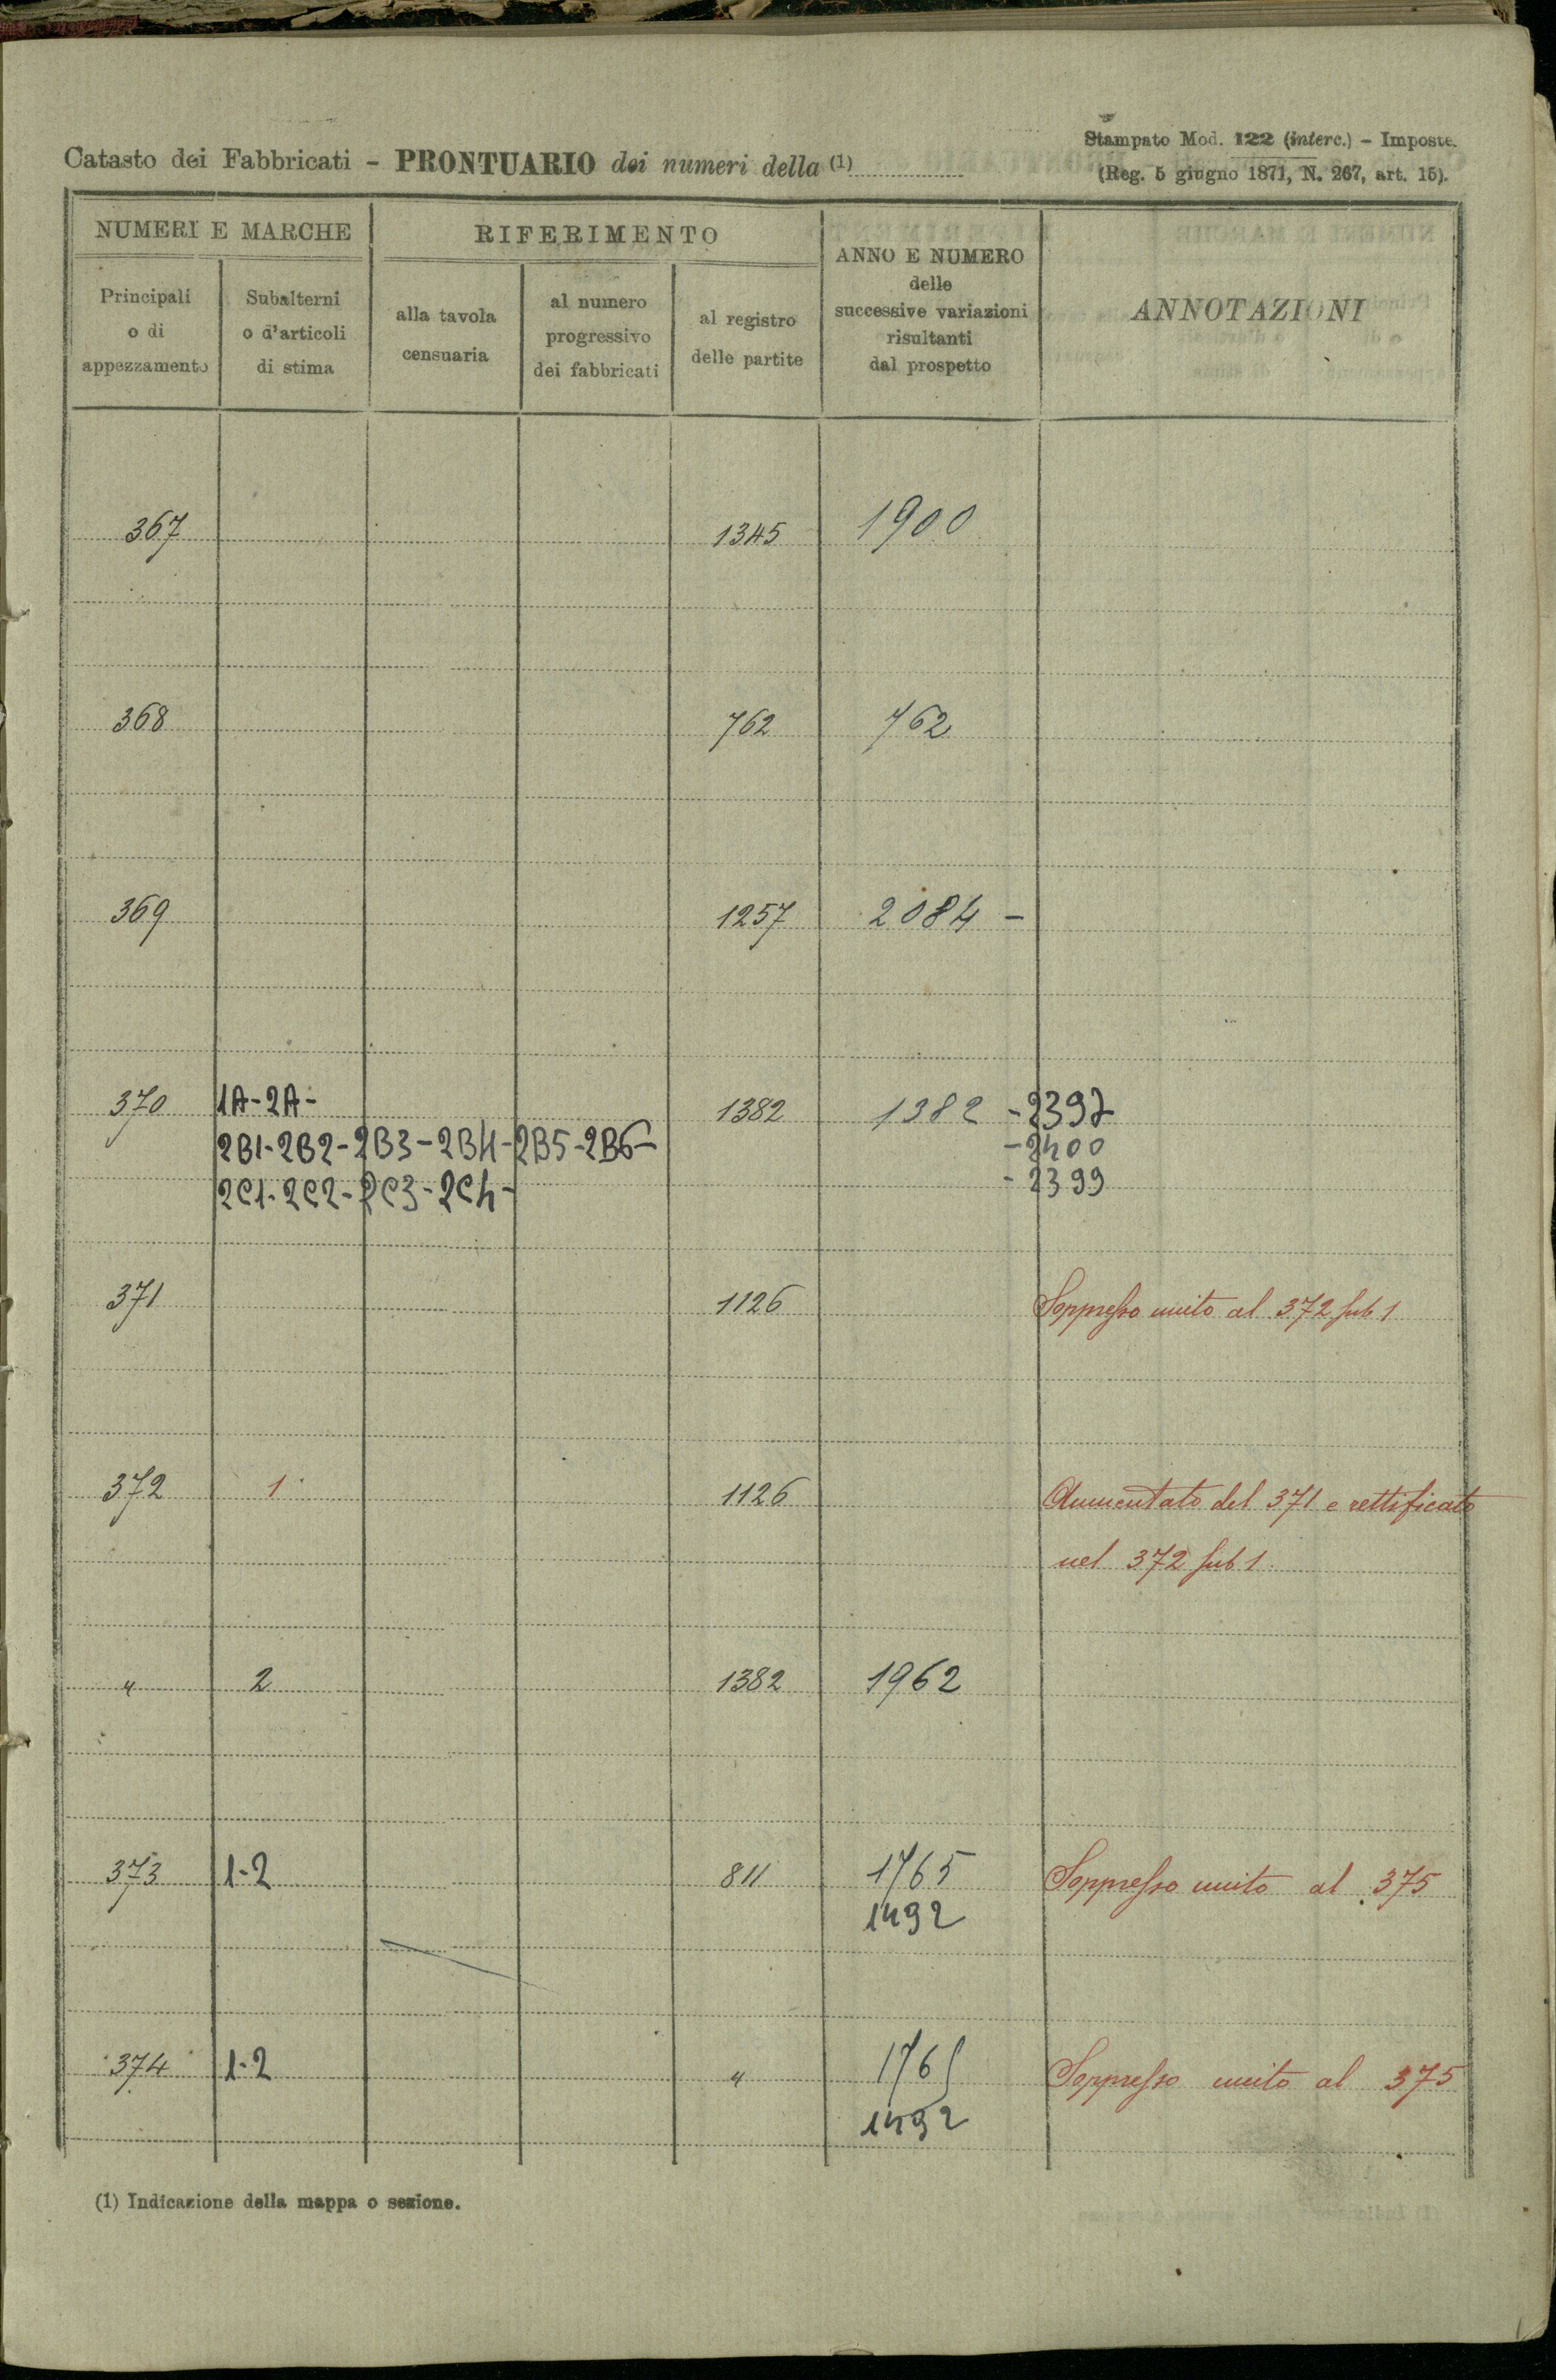 Stampato Mod. 122 (interc.) - Imposte.
Catasto dei Fabbricati - PRONTUARIO dei numeri della (1)
(Reg. 5 giugno 1871, N. 267, art. 15).
NUMERI E MARCHE
RIFERIMENTO
ANNO E NUMERO
delle
successive variazioni
risultanti
dal prospetto
ANNOTAZIONI
Principali
o di
appezzamento
Subalterni
o d'articoli
di stima
alla tavola
censuaria
al numero
progressivo
dei fabbricati
al registro
delle partite
367 1345 1900
368 762 762
369 1257 2084 -
370 1A-2A- 1382 1382 -2397
2B1-2B2-2B3-2B4-2B5-2B6- -2400
2C1-2C2-2C3-2C4- -2399
371 1126 Soppresso unito al 372 sub 1
372 1 1126 Aumentato del 371 e rettificato
nel 372 sub 1.
" 2 1382 1962
373 1-2 811 1765 Soppresso unito al 375
1492
374 1-2 " 1765 Soppresso unito al 375
1492
(1) Indicazione della mappa o sezione.